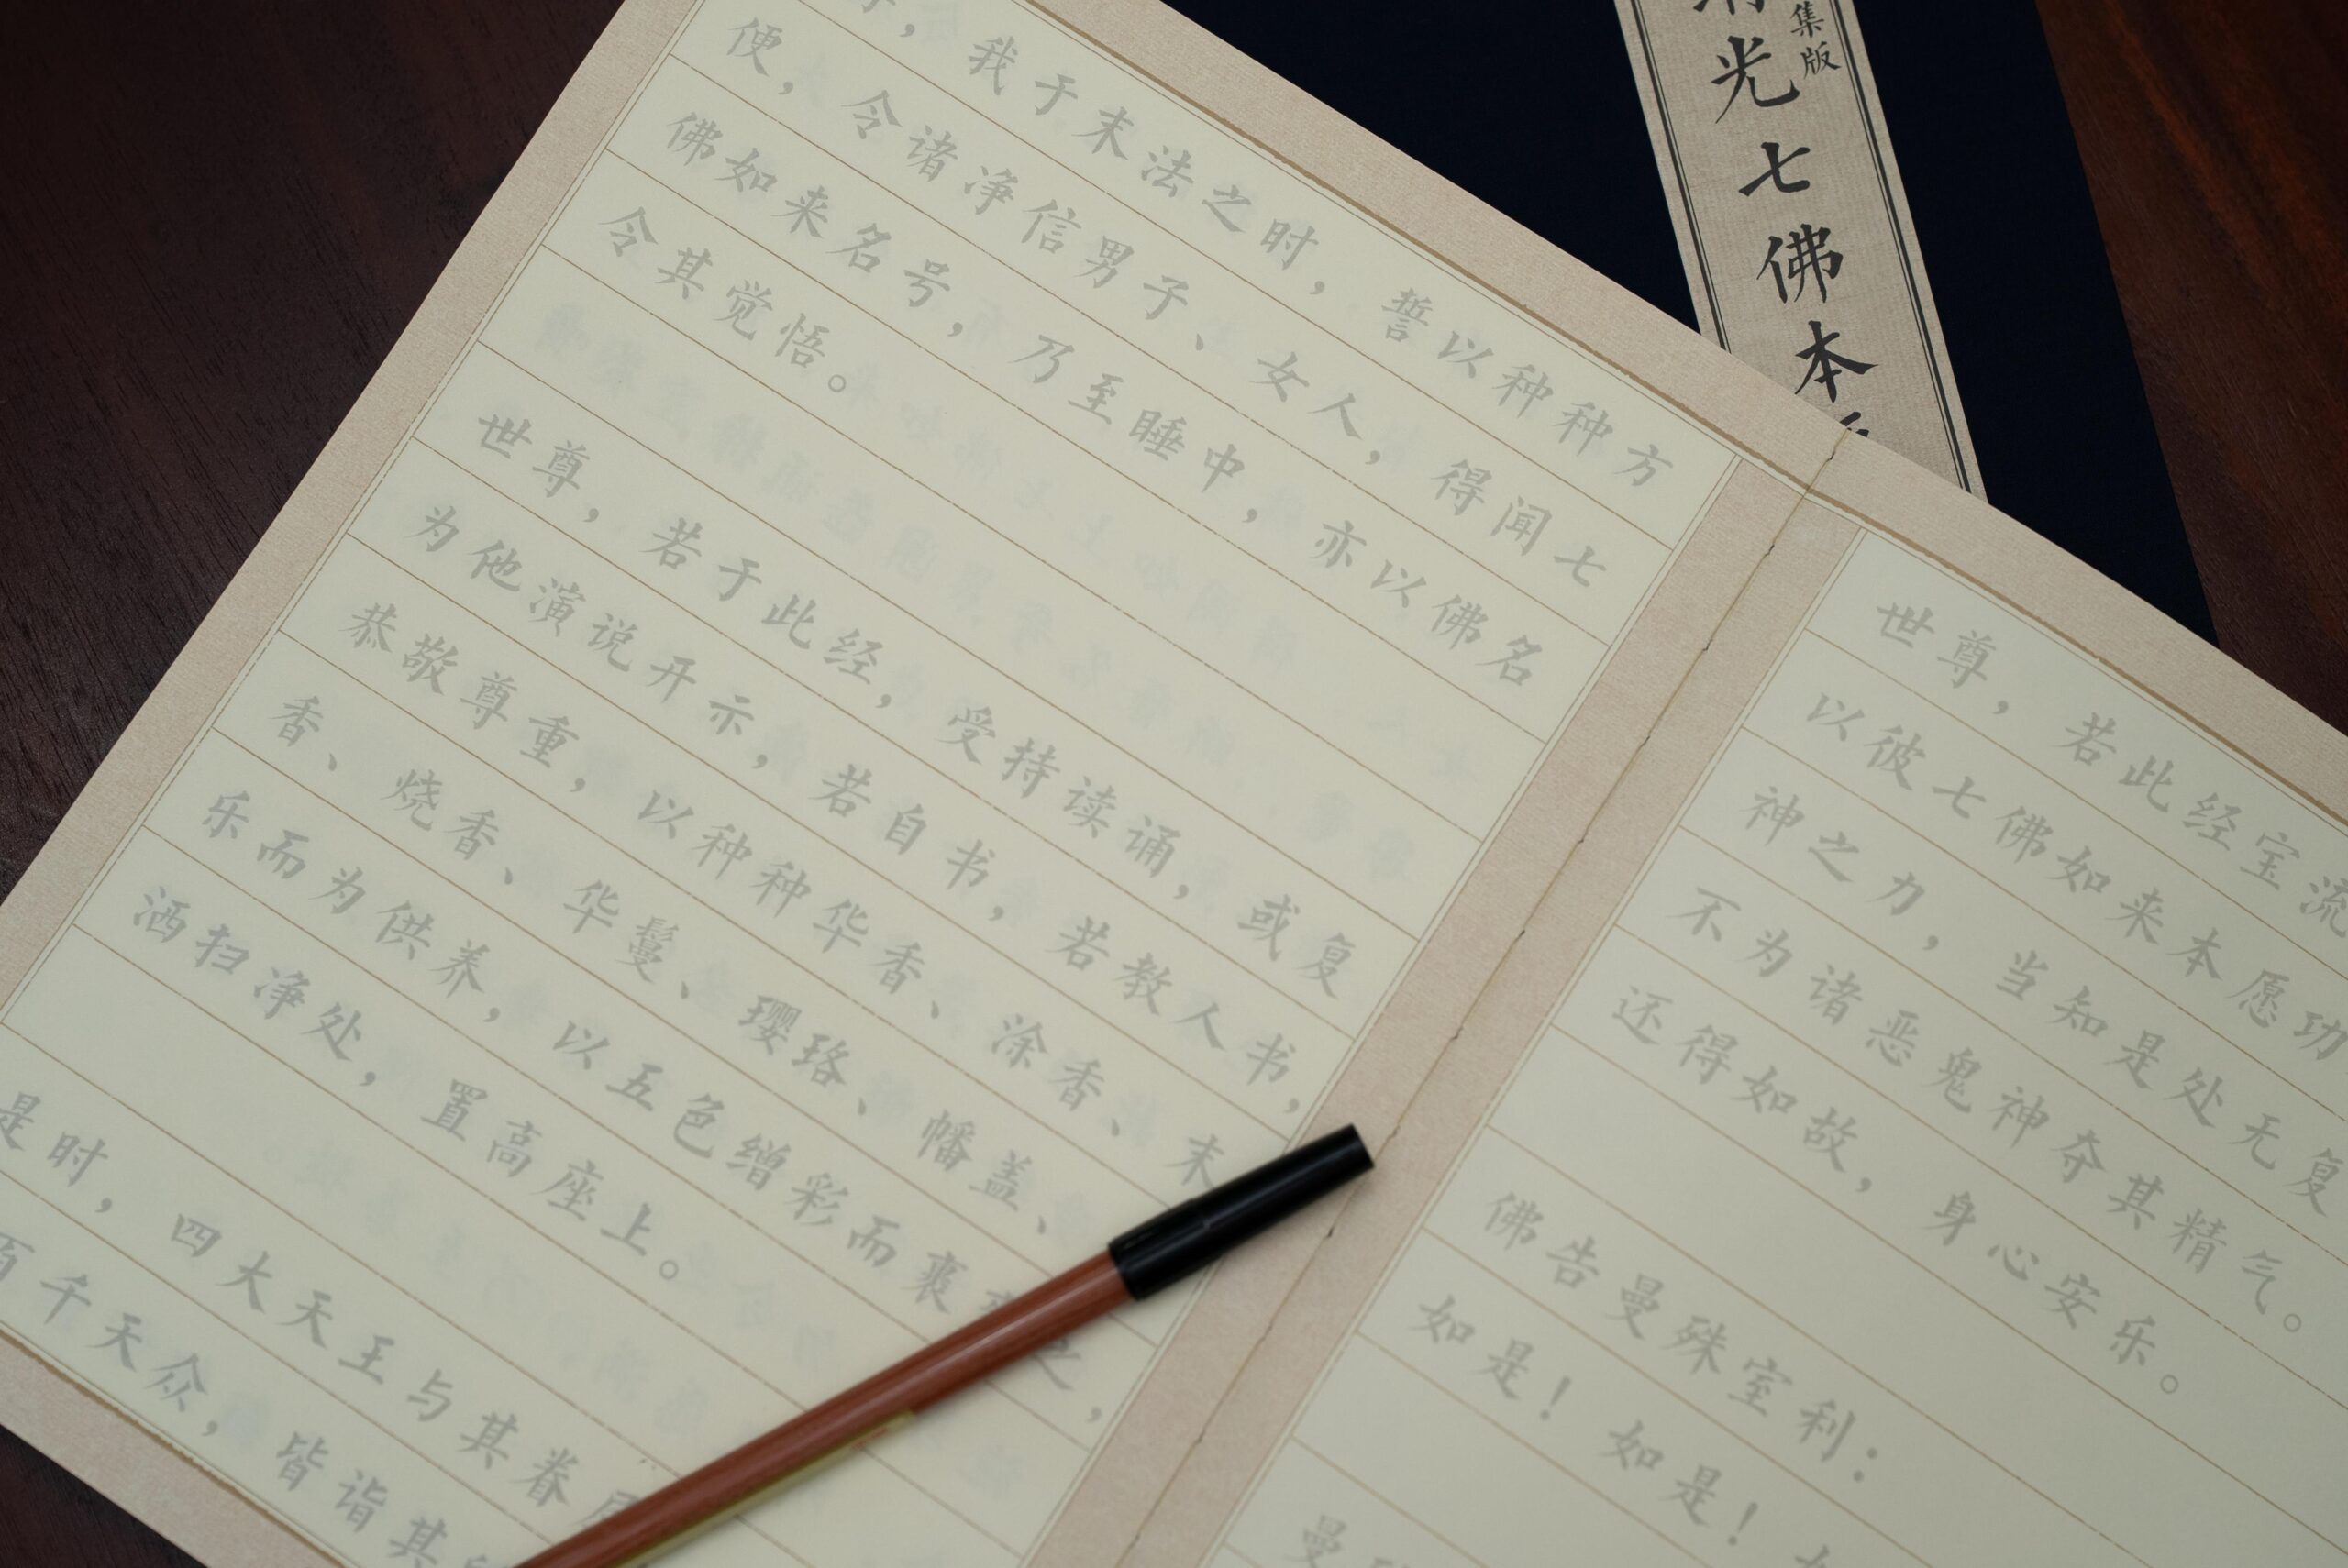 ，我于末法之时，誓以种种方
便，令诸净信男子、女人，得闻七
佛如来名号，乃至睡中，亦以佛名
令其觉悟。
世尊，若于此经，受持读诵，或复
为他演说开示，若自书，若教人书，
恭敬尊重，以种种华香、涂香、末
香、烧香、华鬘、璎珞、幡盖、
乐而为供养，以五色缯彩而裹之，
洒扫净处，置高座上。
是时，四大天王与其眷
百千天众，皆诣其
世尊，若此经宝流
以彼七佛如来本愿功
神之力，当知是处无复
不为诸恶鬼神夺其精气。
还得如故，身心安乐。
佛告曼殊室利：
如是！如是！
曼
集版
光七佛本